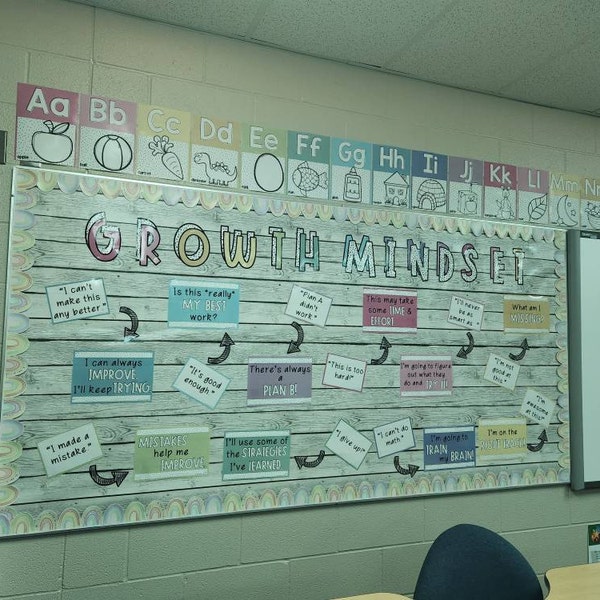 Aa
Bb
Cc
Dd
Ee
Ff
Gg
Hh
Ii
Jj
Kk
Ll
Mm
Nn
apple
GROWTH MINDSET
"I can't
make this
any better"
Is this *really*
MY BEST
work?
"Plan A
didn't
work"
This may take
some TIME &
EFFORT
"I'll never
be as
smart as
What am I
MISSING?
I can always
IMPROVE,
I'll keep TRYING
"It's good
enough"
There's always
a
PLAN B!
"This is too
hard!"
I'm going to figure
out what they
do and TRY IT!
"I'm not
good at
this"
"I'm
awesome
at this"
"I made a
mistake"
MISTAKES
help me
IMPROVE
I'll use some of
the STRATEGIES
I've LEARNED
"I give up!"
"I can't do
math"
I'm going to
TRAIN
my BRAIN!
I'm on the